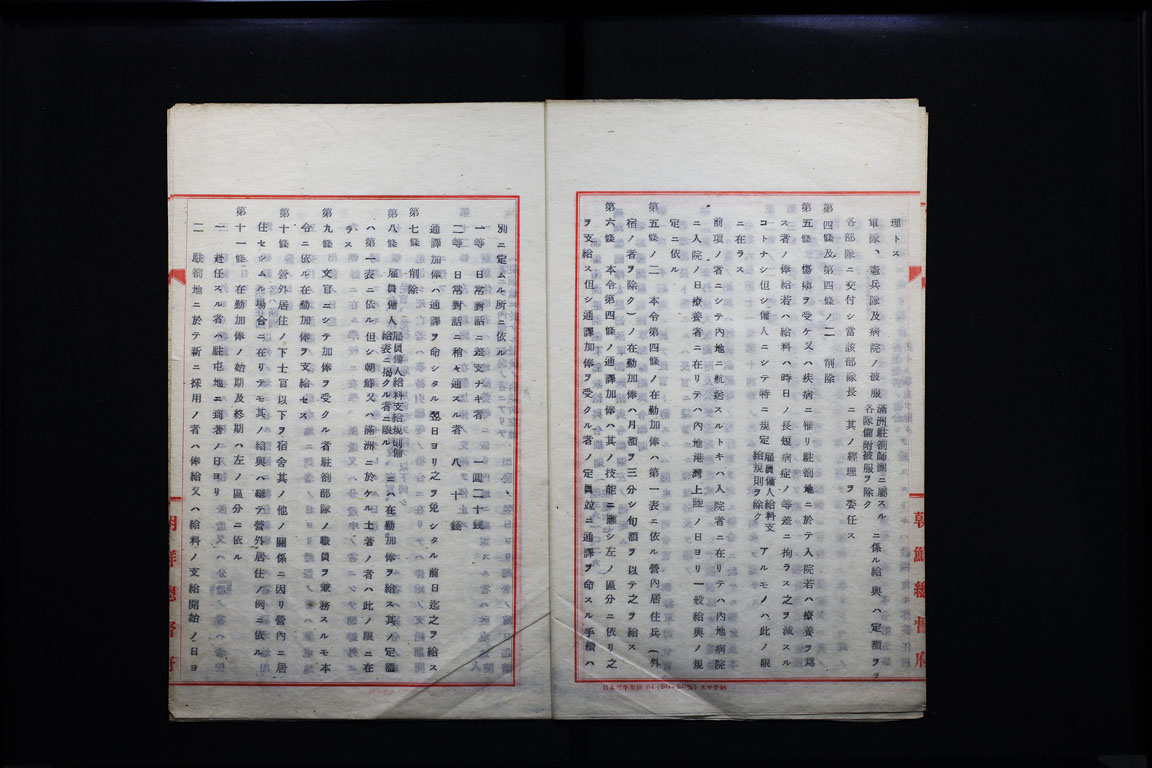 理トス
軍隊、憲兵隊及病院ノ被服 滿洲駐劄師團ニ屬スル各隊備附被服ヲ除ク ニ係ル給與ハ定額ヲヲ
各部隊ニ交付シ當該部隊長ニ其ノ經理ヲ委任ス
第四條及第四條ノ二 削除
第五條 傷痍ヲ受ケ又ハ疾病ニ罹リ駐劄地ニ於テ入院若ハ療養ヲ爲
ス者ノ俸給若ハ給料ハ時日ノ長短病症ノ等差ニ拘ラス之ヲ減スル
コトナシ但シ傭人ニシテ特ニ規定 雇員傭人給料支給規則ヲ除ク アルモノハ此ノ限
ニ在ラス
前項ノ者ニシテ內地ニ航送スルトキハ入院者ニ在リテハ內地病院
ニ入院ノ日療養者ニ在リテハ內地港灣上陸ノ日ヨリ一般給與ノ規
定ニ依ル
第五條ノ二 本令第四條ノ在勤加俸ハ第一表ニ依ル營內居住兵（外
宿ノ者ヲ除ク）ノ在勤加俸ハ月額ヲ三分シ旬額ヲ以テ之ヲ給ス
第六條 本令第四條ノ通譯加俸ハ其ノ技能ニ應シ左ノ區分ニ依リ之
ヲ支給ス但シ通譯加俸ヲ受クル者ノ定員竝ニ通譯ヲ命スル手續ハ
朝鮮總督府
別ニ定ムル所ニ依ル
一等 日常對話ニ差支ナキ者 一圓二十錢
二等 日常對話ニ稍々通スル者 八十錢
通譯加俸ハ通譯ヲ命シタル翌日ヨリ之ヲ免シタル前日迄之ヲ給ス
第七條 削除
第八條 雇員傭人 雇員傭人給料支給規則傭給表ニ揭クル者ニ限ル ニハ在勤加俸ヲ給ス其ノ定額
ハ第一表ニ依ル但シ朝鮮又ハ滿洲ニ於ケル土著ノ者ハ此ノ限ニ在
ラス
第九條 文官ニシテ加俸ヲ受クル者駐劄部隊ノ職員ヲ兼務スルモ本
令ニ依ル在勤加俸ヲ支給セス
第十條 營外居住ノ下士官以下ヲ宿舍其ノ他ノ關係ニ因リ營內ニ居
住セシムル場合ニ在リテモ其ノ給與ハ總テ營外居住ノ例ニ依ル
第十一條 在勤加俸ノ始期及終期ハ左ノ區分ニ依ル
一 赴任スル者ハ駐屯地ニ到著ノ日ヨリ
二 駐劄地ニ於テ新ニ採用ノ者ハ俸給又ハ給料ノ支給開始ノ日ヨ
朝鮮總督府